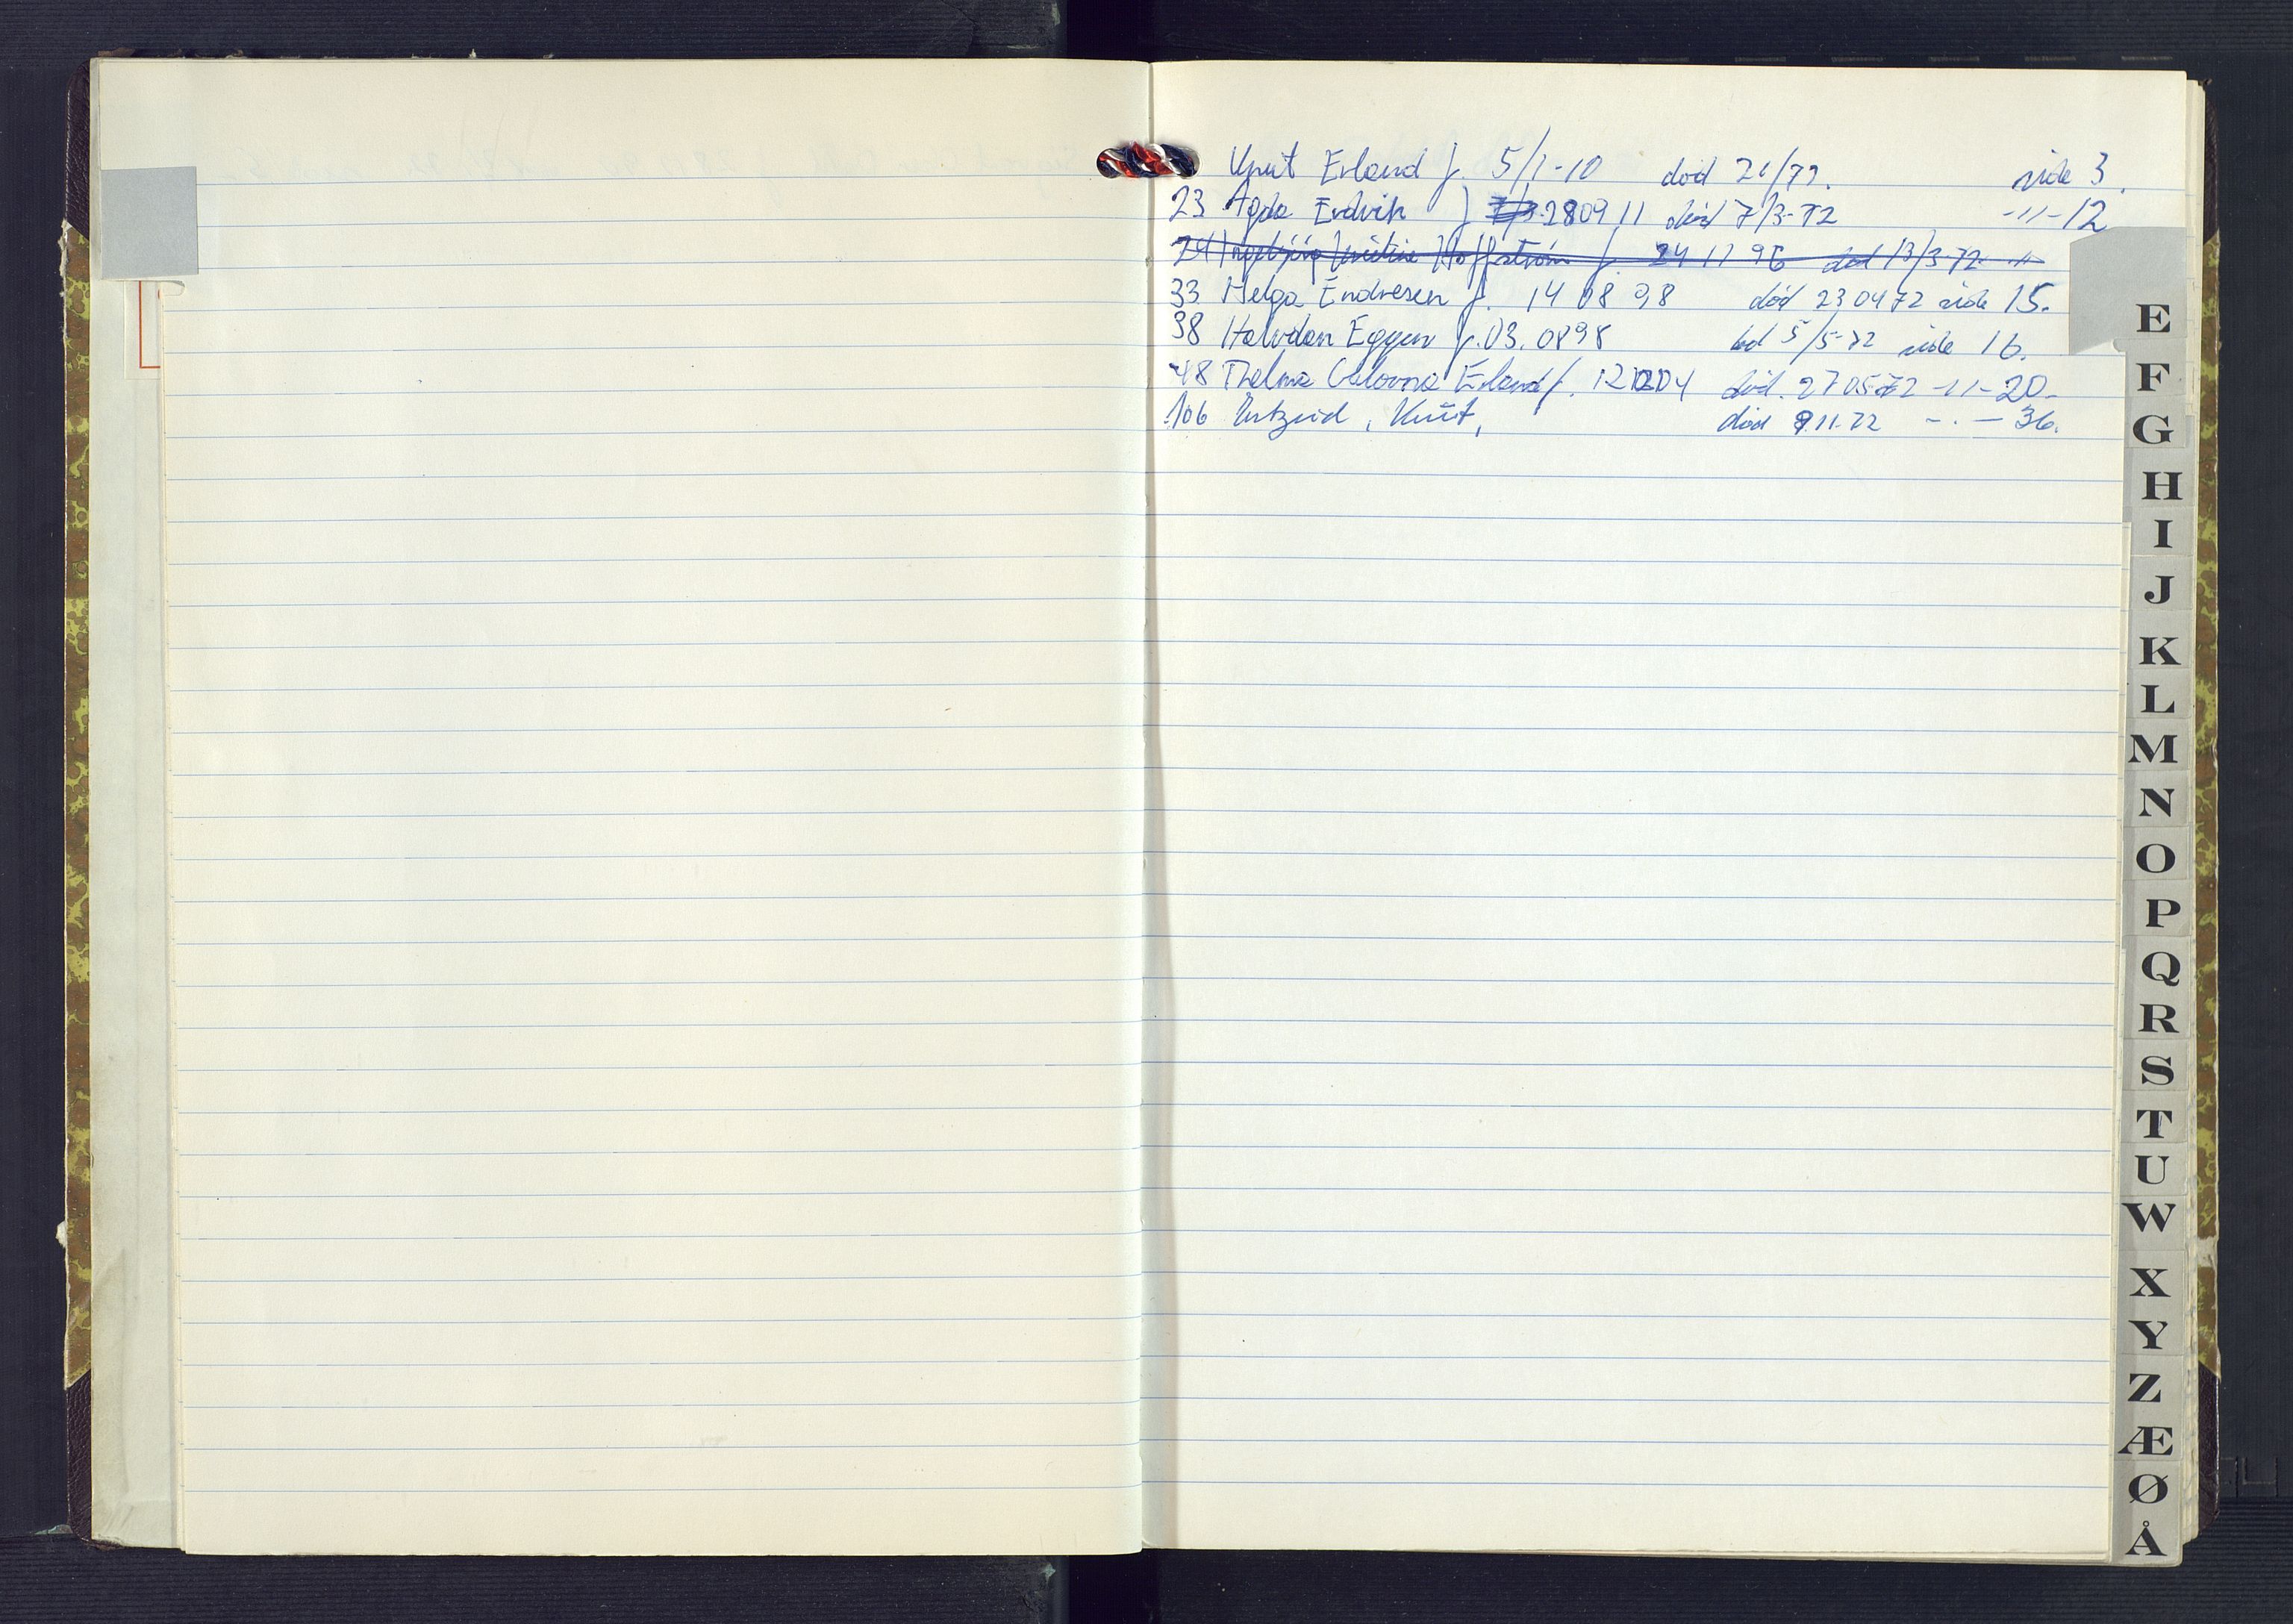 Knut Erland f. 5/1-10 død 21/72. side 3.
23 Agda Endvik f 280911 død 7/3-72 -11-12
24 Ingebjørg Hoffstrøm f. 24 11 96 død 13/3-72 -11-
33 Helga Endresen f. 14 08 98 død 23 04 72 side 15.
38 Halvdan Eggen f. 03. 0898 død 5/5-72 side 16.
48 Thelma Erland f. 121204 død. 270572 -11- 20-
106 Knut, død 9.11.72 - . - 36.
E
F
G
H
I
J
K
L
M
N
O
P
Q
R
S
T
U
W
X
Y
Z
Æ
Ø
Å